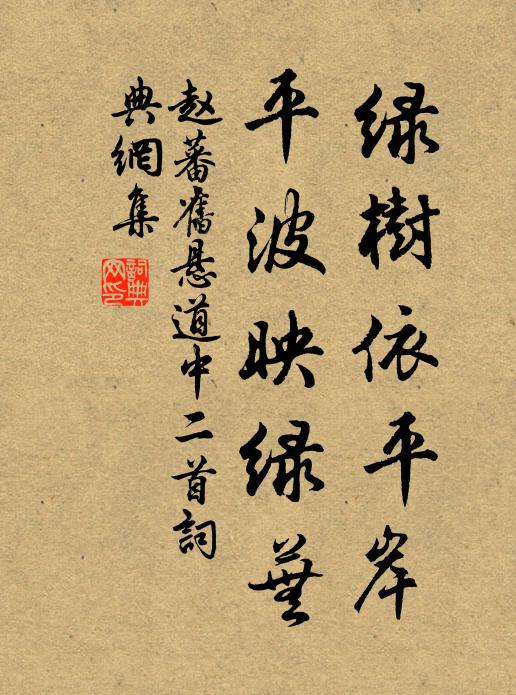 绿樹依平岸
平波映绿蕪
赵蕃舊悬道中二首詞
典網集
詞典
网印